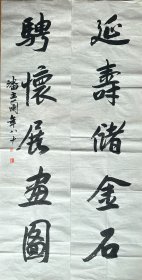 延壽储金石
騁懷展畫圖
年八十